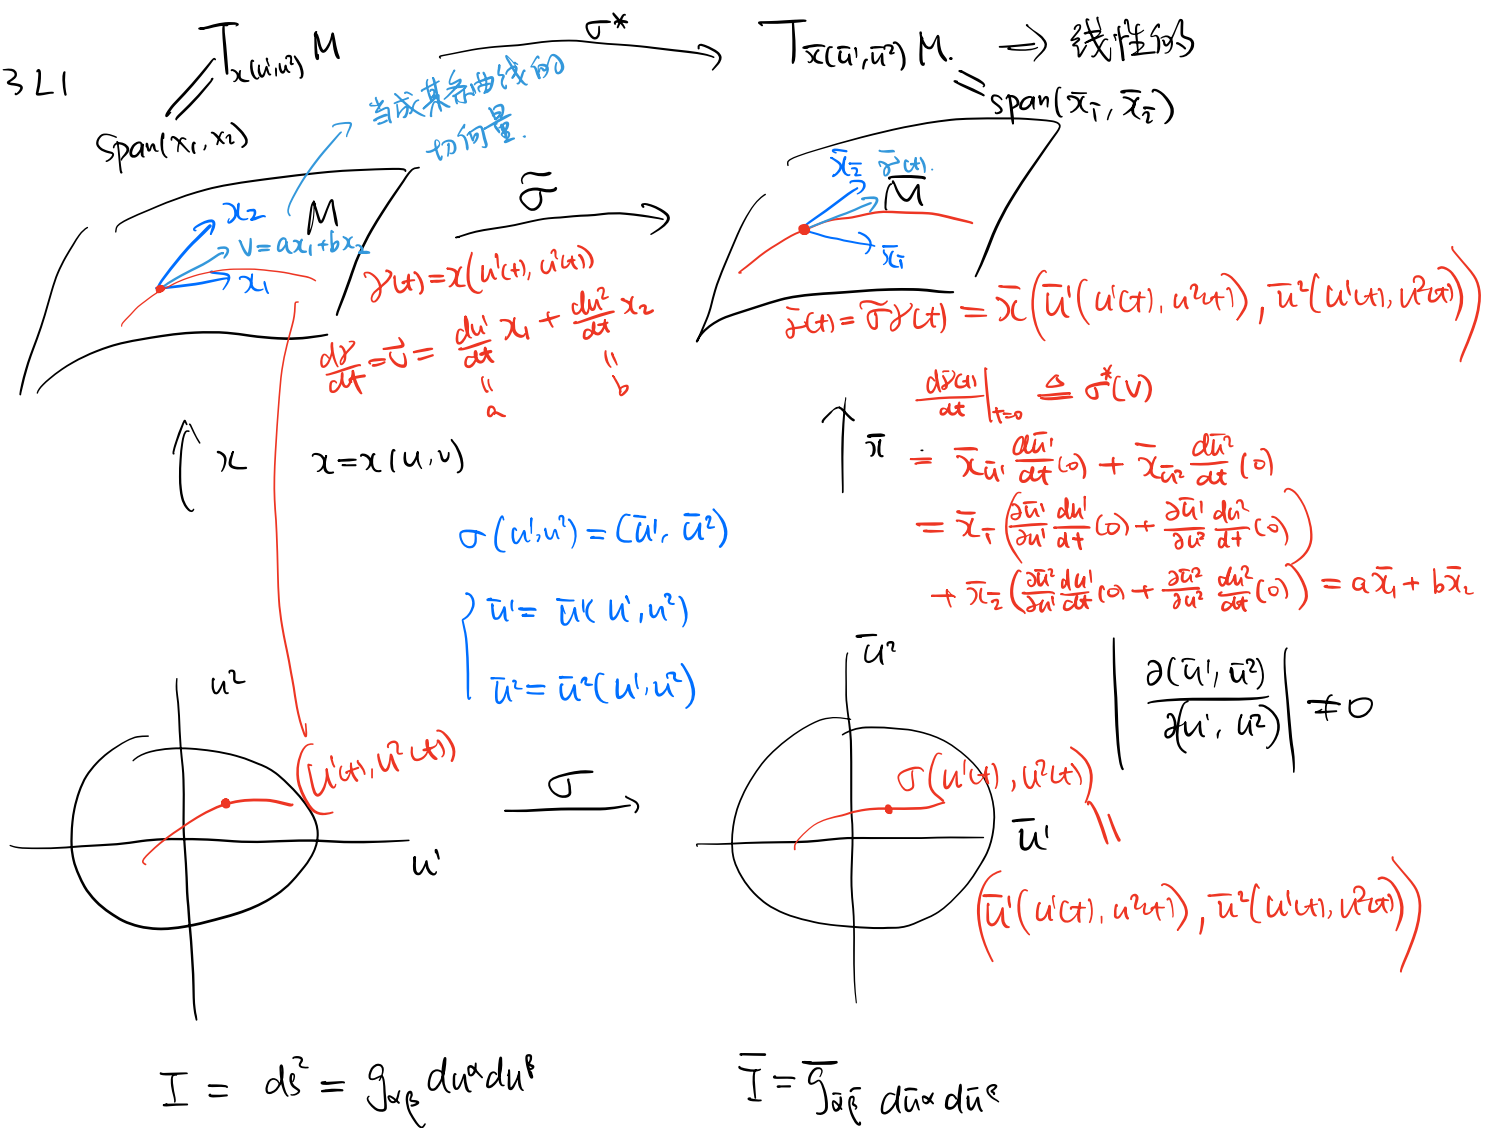 3 L1
T_{x(u¹,u²)} M
σ*
T_{x̄(ū¹,ū²)} M. → 线性的
span(x₁, x₂)
span(x̄_1̄, x̄_2̄)
当成某条曲线的
切向量.
M
x₂
v = ax₁+bx₂
x₁
σ̃
x̄_2̄
γ̄(t).
M̄
x̄_1̄
γ(t) = x(u¹(t), u²(t))
dγ/dt = v⃗ = du¹/dt x₁ + du²/dt x₂
= =
a b
γ̄(t) = σ̃γ(t) = x̄(ū¹(u¹(t), u²(t)), ū²(u¹(t), u²(t)))
dγ̄(t)/dt |_{t=0} ≜ σ*(v)
= x̄_{ū¹} dū¹/dt (0) + x̄_{ū²} dū²/dt (0)
= x̄_1̄ (∂ū¹/∂u¹ du¹/dt (0) + ∂ū¹/∂u² du²/dt (0))
+ x̄_2̄ (∂ū²/∂u¹ du¹/dt (0) + ∂ū²/∂u² du²/dt (0)) = ax̄₁ + bx̄₂
x
x = x(u, v)
x̄
σ(u¹,u²) = (ū¹, ū²)
ū¹ = ū¹(u¹, u²)
ū² = ū²(u¹, u²)
|∂(ū¹, ū²)/∂(u¹, u²)| ≠ 0
u²
(u¹(t), u²(t))
u¹
σ
ū²
σ(u¹(t), u²(t))
ū¹
=
(ū¹(u¹(t), u²(t)), ū²(u¹(t), u²(t)))
I = ds² = g_{αβ} du^α du^β
Ī = ḡ_{ᾱβ̄} dū^α dū^β